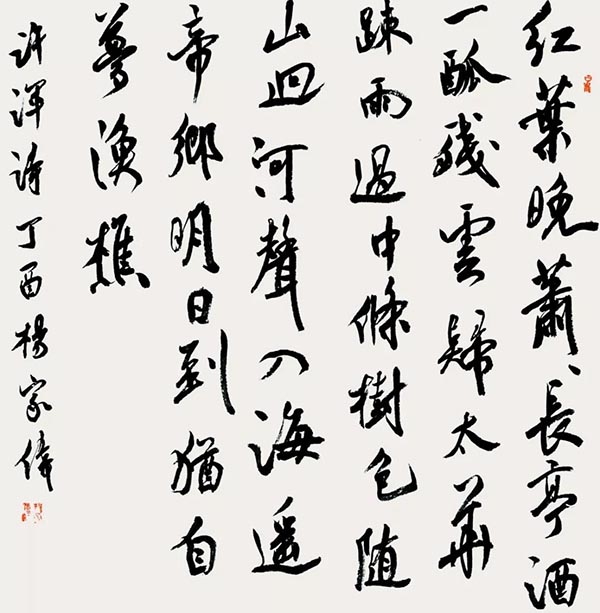 红葉晚蕭、長亭酒
一瓢殘雲歸太華
疎雨過中條樹色随
山迥河聲入海遥
帝鄉明日到猶自
夢渔樵
许渾诗丁酉楊家偉